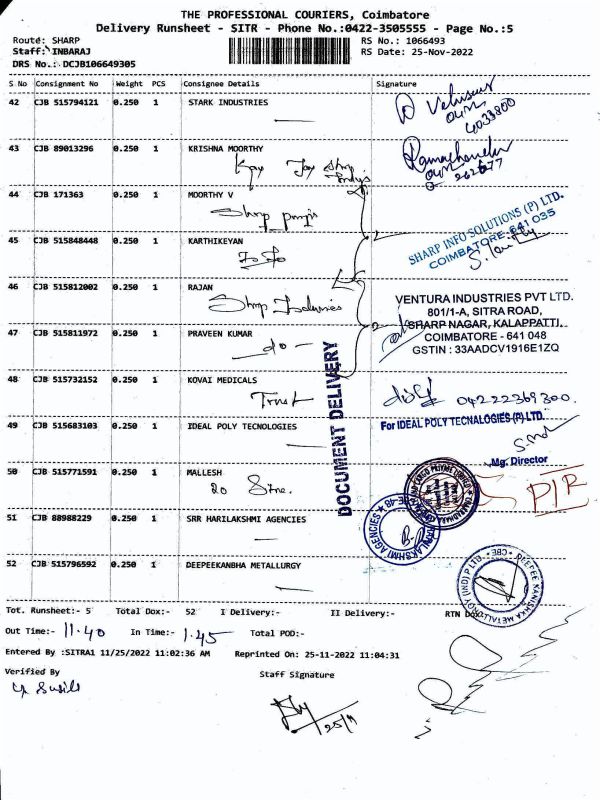 THE PROFESSIONAL COURIERS, Coimbatore
Delivery Runsheet - SITR - Phone No.:0422-3505555 - Page No.:5
Route: SHARP
RS No.: 1066493
Staff: INBARAJ
RS Date: 25-Nov-2022
DRS No.: DCJB106649305
S No Consignment No Weight PCS Consignee Details Signature
42 CJB 515794121 0.250 1 STARK INDUSTRIES
4033800
43 CJB 89013296 0.250 1 KRISHNA MOORTHY
Ramachandra
262677
44 CJB 171363 0.250 1 MOORTHY V
Sharp pumps
SHARP INFO SOLUTIONS (P) LTD.
COIMBATORE-641 035
45 CJB 515848448 0.250 1 KARTHIKEYAN
46 CJB 515812002 0.250 1 RAJAN
Sharp Industries
VENTURA INDUSTRIES PVT LTD.
801/1-A, SITRA ROAD,
SHARP NAGAR, KALAPPATTI,
COIMBATORE - 641 048
GSTIN : 33AADCV1916E1ZQ
47 CJB 515811972 0.250 1 PRAVEEN KUMAR
- do -
DOCUMENT DELIVERY
48 CJB 515732152 0.250 1 KOVAI MEDICALS
Trust
04222369300.
49 CJB 515683103 0.250 1 IDEAL POLY TECNOLOGIES
For IDEAL POLY TECNALOGIES (P) LTD.
Mg. Director
50 CJB 515771591 0.250 1 MALLESH
P/R
51 CJB 88988229 0.250 1 SRR HARILAKSHMI AGENCIES
52 CJB 515796592 0.250 1 DEEPEEKANBHA METALLURGY
Tot. Runsheet:- 5 Total Dox:- 52 I Delivery:- II Delivery:- RTN Dox:-
Out Time:- 11.40 In Time:- 1.45 Total POD:-
Entered By :SITRA1 11/25/2022 11:02:36 AM Reprinted On: 25-11-2022 11:04:31
Verified By
Staff Signature
25/11